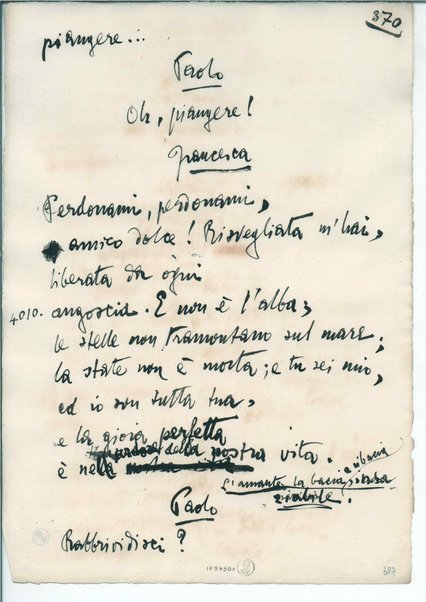 370
piangere...
Paolo
Oh, piangere!
Francesca
Perdonami, perdonami,
amico dolce! Risvegliata m'hai,
liberata da ogni
4010. angoscia. E non è l'alba;
le stelle non tramontano sul mare;
la state non è morta; e tu sei mio,
ed io son tutta tua,
e la gioia perfetta
è nell' della nostra vita.
L'amante la bacia e ribacia
insaziabile.
Paolo
Rabbrividisci?
387